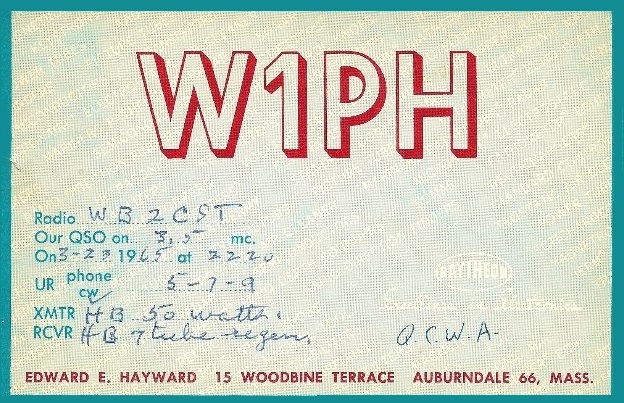 W1PH
Radio WB2CST
Our QSO on 3,5 mc.
On 3-23 1965 at 2220
UR phone cw 5-7-9
XMTR HB 50 watts.
RCVR HB 7 tube regen.
RAYTHEON
Q.C.W.A-
EDWARD E. HAYWARD 15 WOODBINE TERRACE AUBURNDALE 66, MASS.